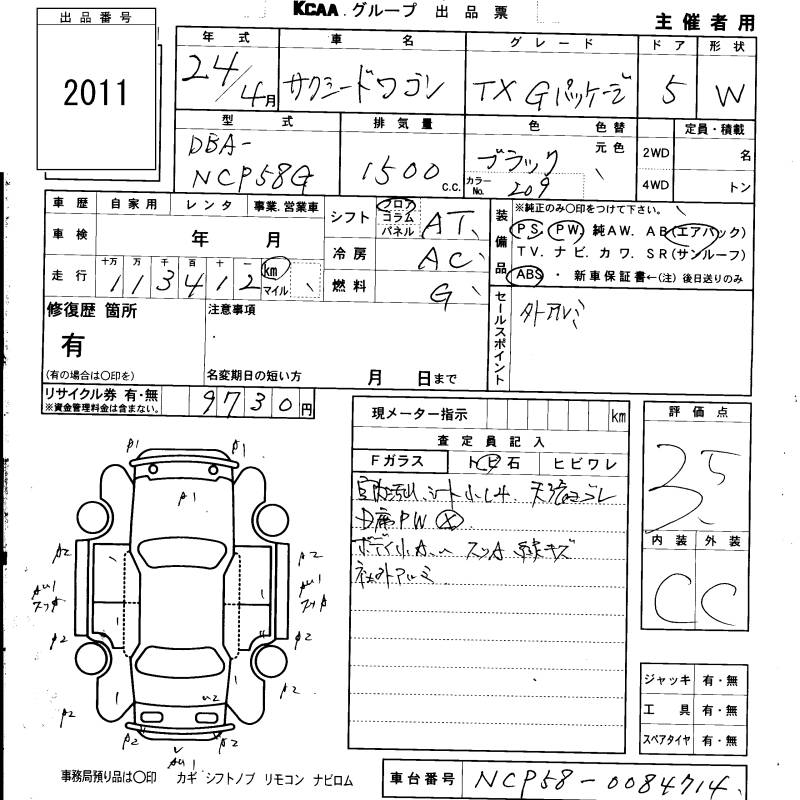 KCAA.グループ 出品票
主催者用
出品番号
2011
年式 車名 グレード ドア 形状
24/4月 サクシードワゴン TX Gパッケージ 5 W
型式 排気量 色 色替 定員・積載
DBA-
NCP58G 1500 c.c. ブラック 元色 2WD 名
カラーNo. 209 4WD トン
車歴 自家用 レンタ 事業.営業車
シフト フロア コラム パネル AT
装備品 ※純正のみ○印をつけて下さい。
車検 年 月
PS PW 純AW. AB(エアバック)
冷房 AC
TV. ナビ. カワ. SR(サンルーフ)
走行 十万 万 千 百 十 一 km マイル
113412
燃料 G
ABS・新車保証書←(注)後日送りのみ
修復歴 箇所 注意事項
有
セールスポイント 外アルミ
(有の場合は○印を) 名変期日の短い方 月 日まで
リサイクル券 有・無 9730円
※資金管理料金は含まない。
現メーター指示 km
評価点
査定員記入
3.5
Fガラス トビ石 ヒビワレ
D席PW
社外アルミ
内装 外装
C C
A1 A1
A1
A2 A2
AU1
A2 A2
U2
A2 A2
A2 A2
AU1
ジャッキ 有・無
工具 有・無
スペアタイヤ 有・無
事務局預り品は○印 カギ シフトノブ リモコン ナビロム
車台番号 NCP58-0084714